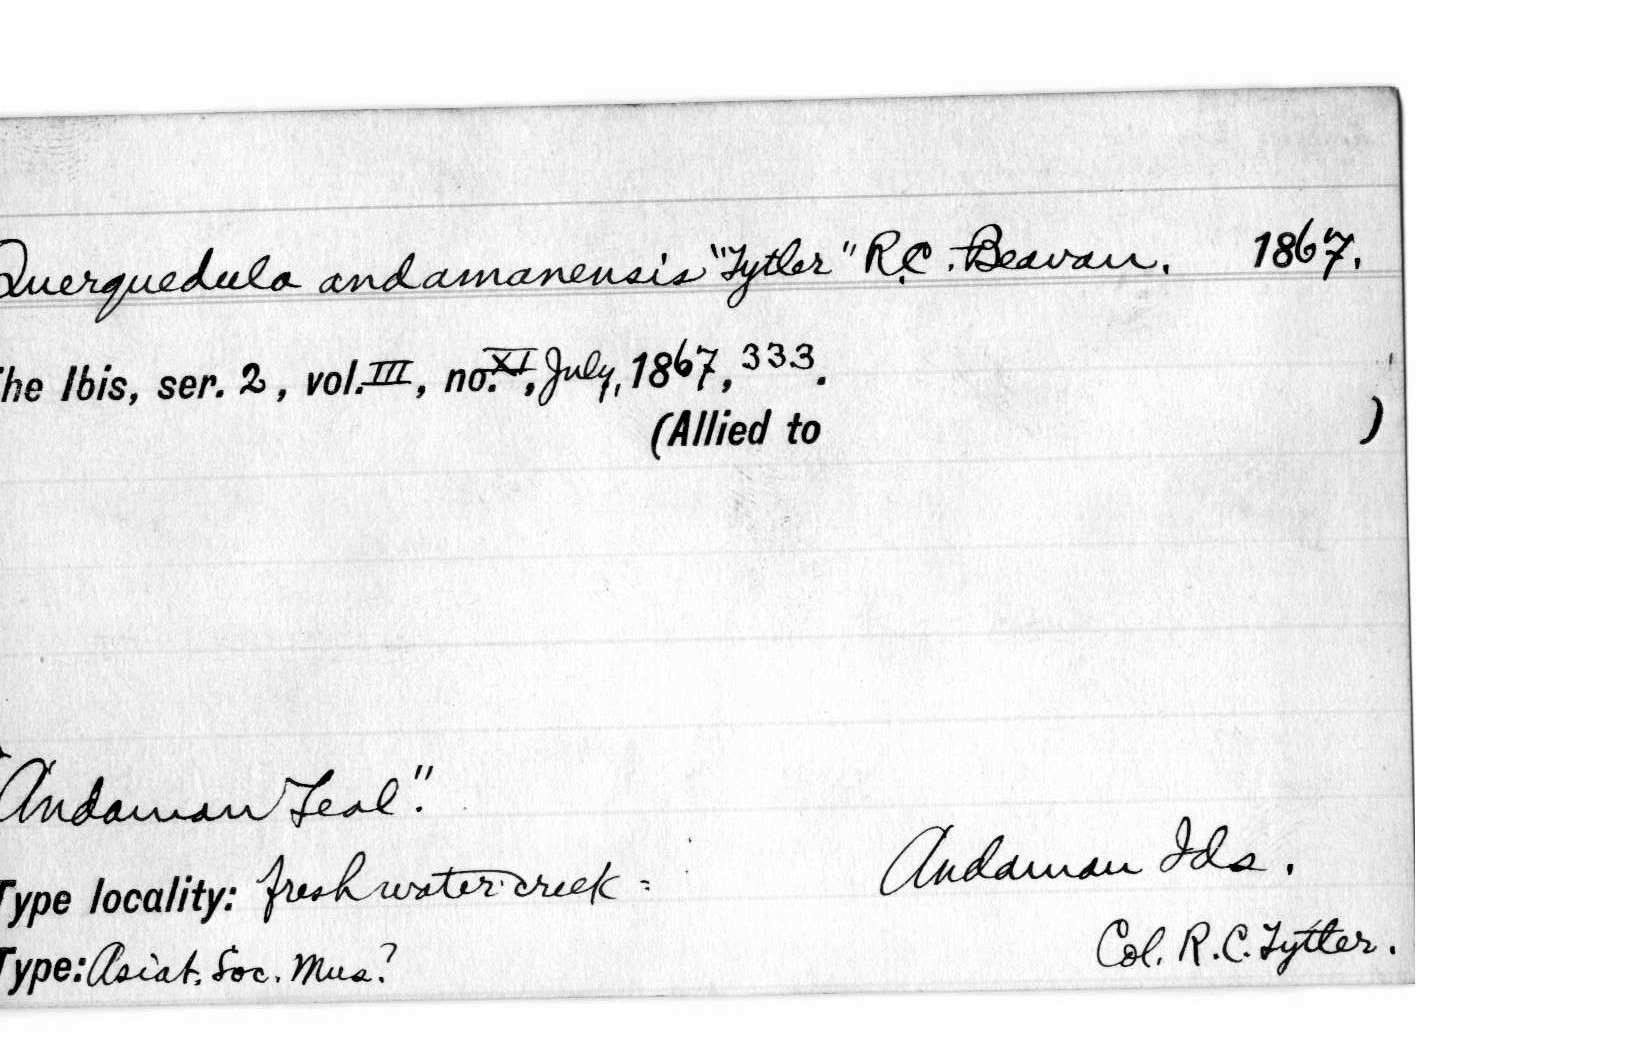 Querquedula andamanensis "Tytler" R.C. Beavan. 1867.
The Ibis, ser. 2, vol. III, no. XI, July, 1867, 333.
(Allied to )
"Andaman Teal".
Type locality: fresh water creek = Andaman Ids.
Type: Asiat. Soc. Mus.? Col. R.C. Tytler.